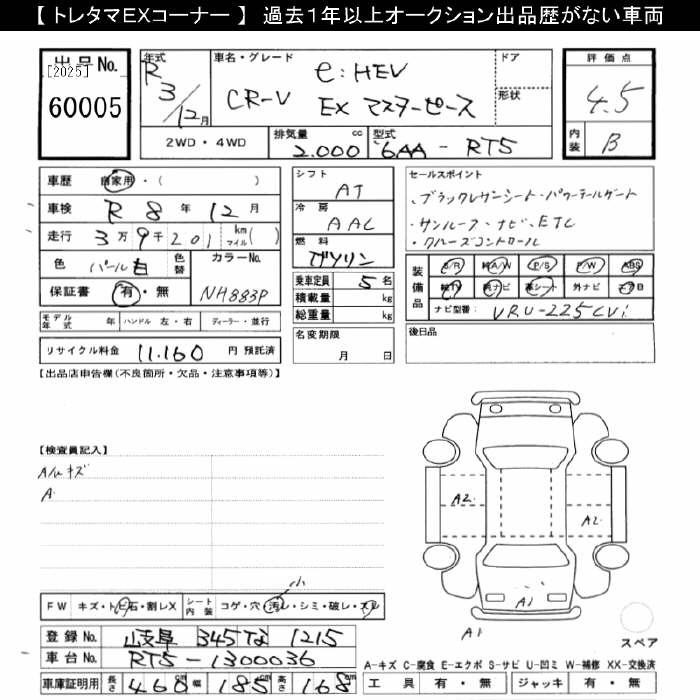 【 トレタマEXコーナー 】 過去1年以上オークション出品歴がない車両
出品No.
[2025]
60005
年式 R 3/12月
車名・グレード e:HEV
CR-V EX マスターピース
ドア
形状
2WD・4WD 排気量 2.000 cc 型式 6AA - RT5
評価点
4.5
内装 B
車歴 自家用・( )
車検 R 8年 12月
走行 3万9千201 km マイル( )
色 パール白 色替 カラーNo.
保証書 有・無 NH883P
モデル年式 年 ハンドル 左・右 ディーラー・並行
リサイクル料金 11.160 円 預託済
シフト AT
冷房 AAC
燃料 ガソリン
乗車定員 5 名
積載量 kg
総重量 kg
名変期限
月 日
セールスポイント
・ブラックレザーシート・パワーテールゲート
・サンルーフ・ナビ・ETC
・クルーズコントロール
装備品 S/R 純A/W P/S P/W ABS
純TV 純ナビ 革シート 外ナビ エアB
ナビ型番: VRU-225CVi
後日品
【出品店申告欄(不良箇所・欠品・注意事項等)】
【検査員記入】
A/Wキズ
A
A2
A2
A1
A1
スペア
小
FW キズ・トビ石・割レX シート内装 コゲ・穴・汚レ・シミ・破レ・スレ
登録No. 岐阜 345 な 1215
車台No. RT5-1300036
車庫証明用 長さ 460 cm 幅 185 cm 高さ 168 cm
A-キズ C-腐食 E-エクボ S-サビ U-凹ミ W-補修 XX-交換済
工具 有・無 ジャッキ 有・無